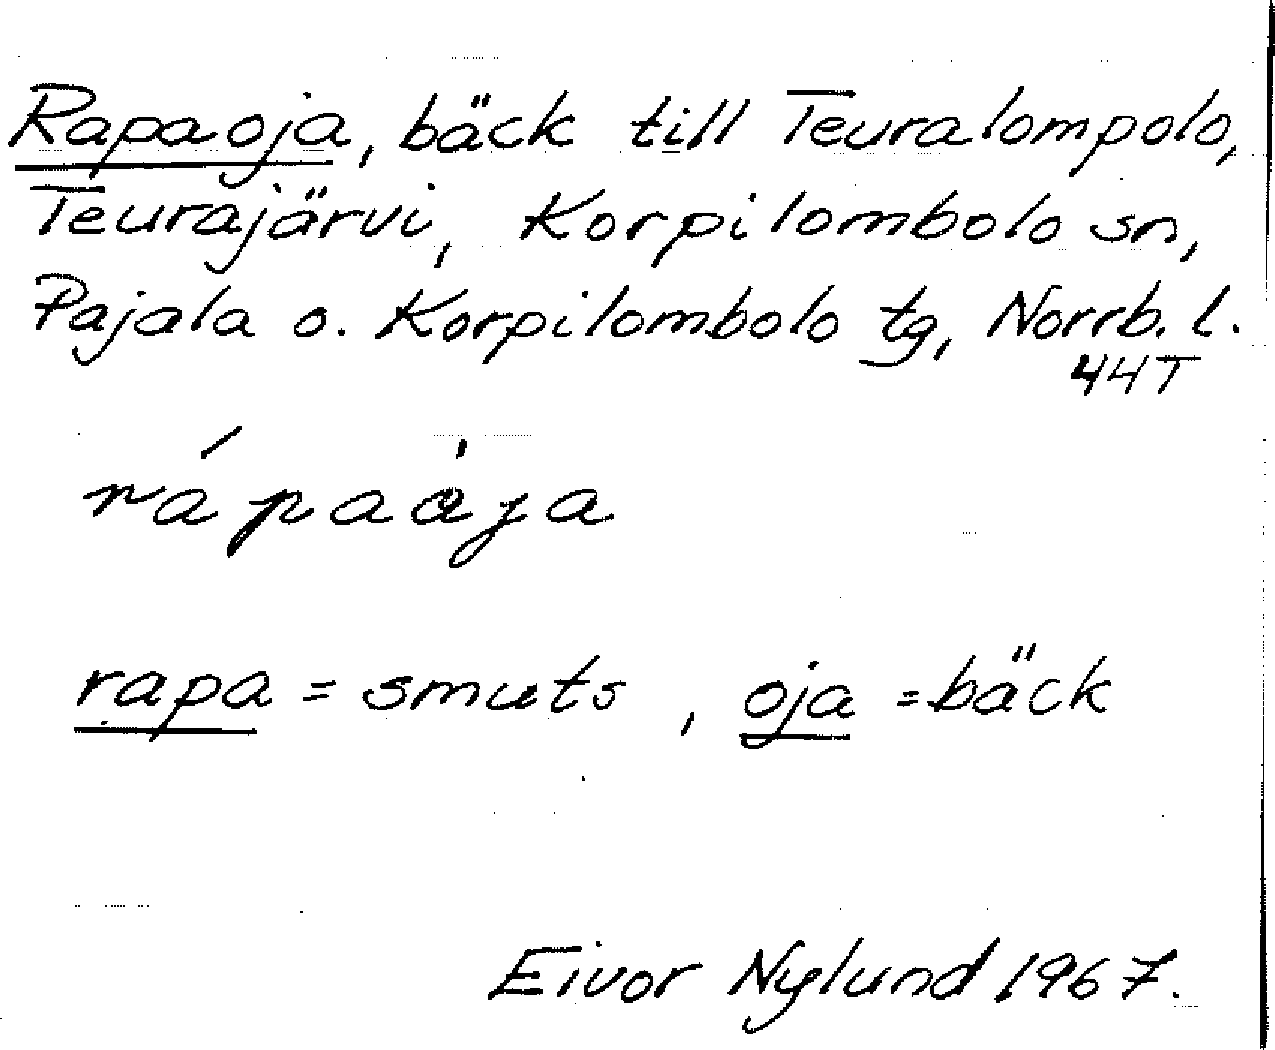 Rapaoja, bäck till Teuralompolo,
Teurajärvi, Korpilombolo sn,
Pajala o. Korpilombolo tg, Norrb. l.
44T
rápaåja
rapa = smuts , oja = bäck
Eivor Nylund 1967.